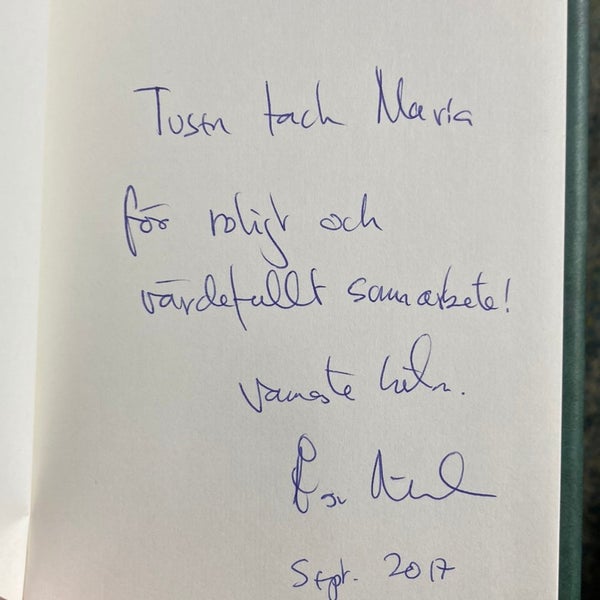 Tusen tack Maria
för roligt och
värdefullt samarbete!
Varmaste häln.
Sept. 2017